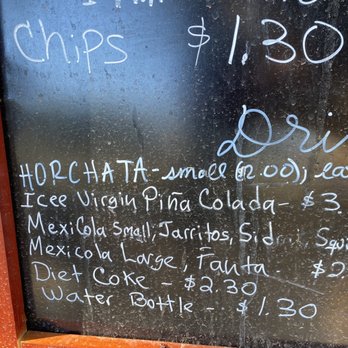 Chips $1.30
Dri
HORCHATA - small (2.00); la
Icee Virgin Piña Colada - $3.
Mexicola Small, Jarritos, Sidral, Squi
Mexicola Large, Fanta - $2
Diet Coke - $2.30
Water Bottle - $1.30